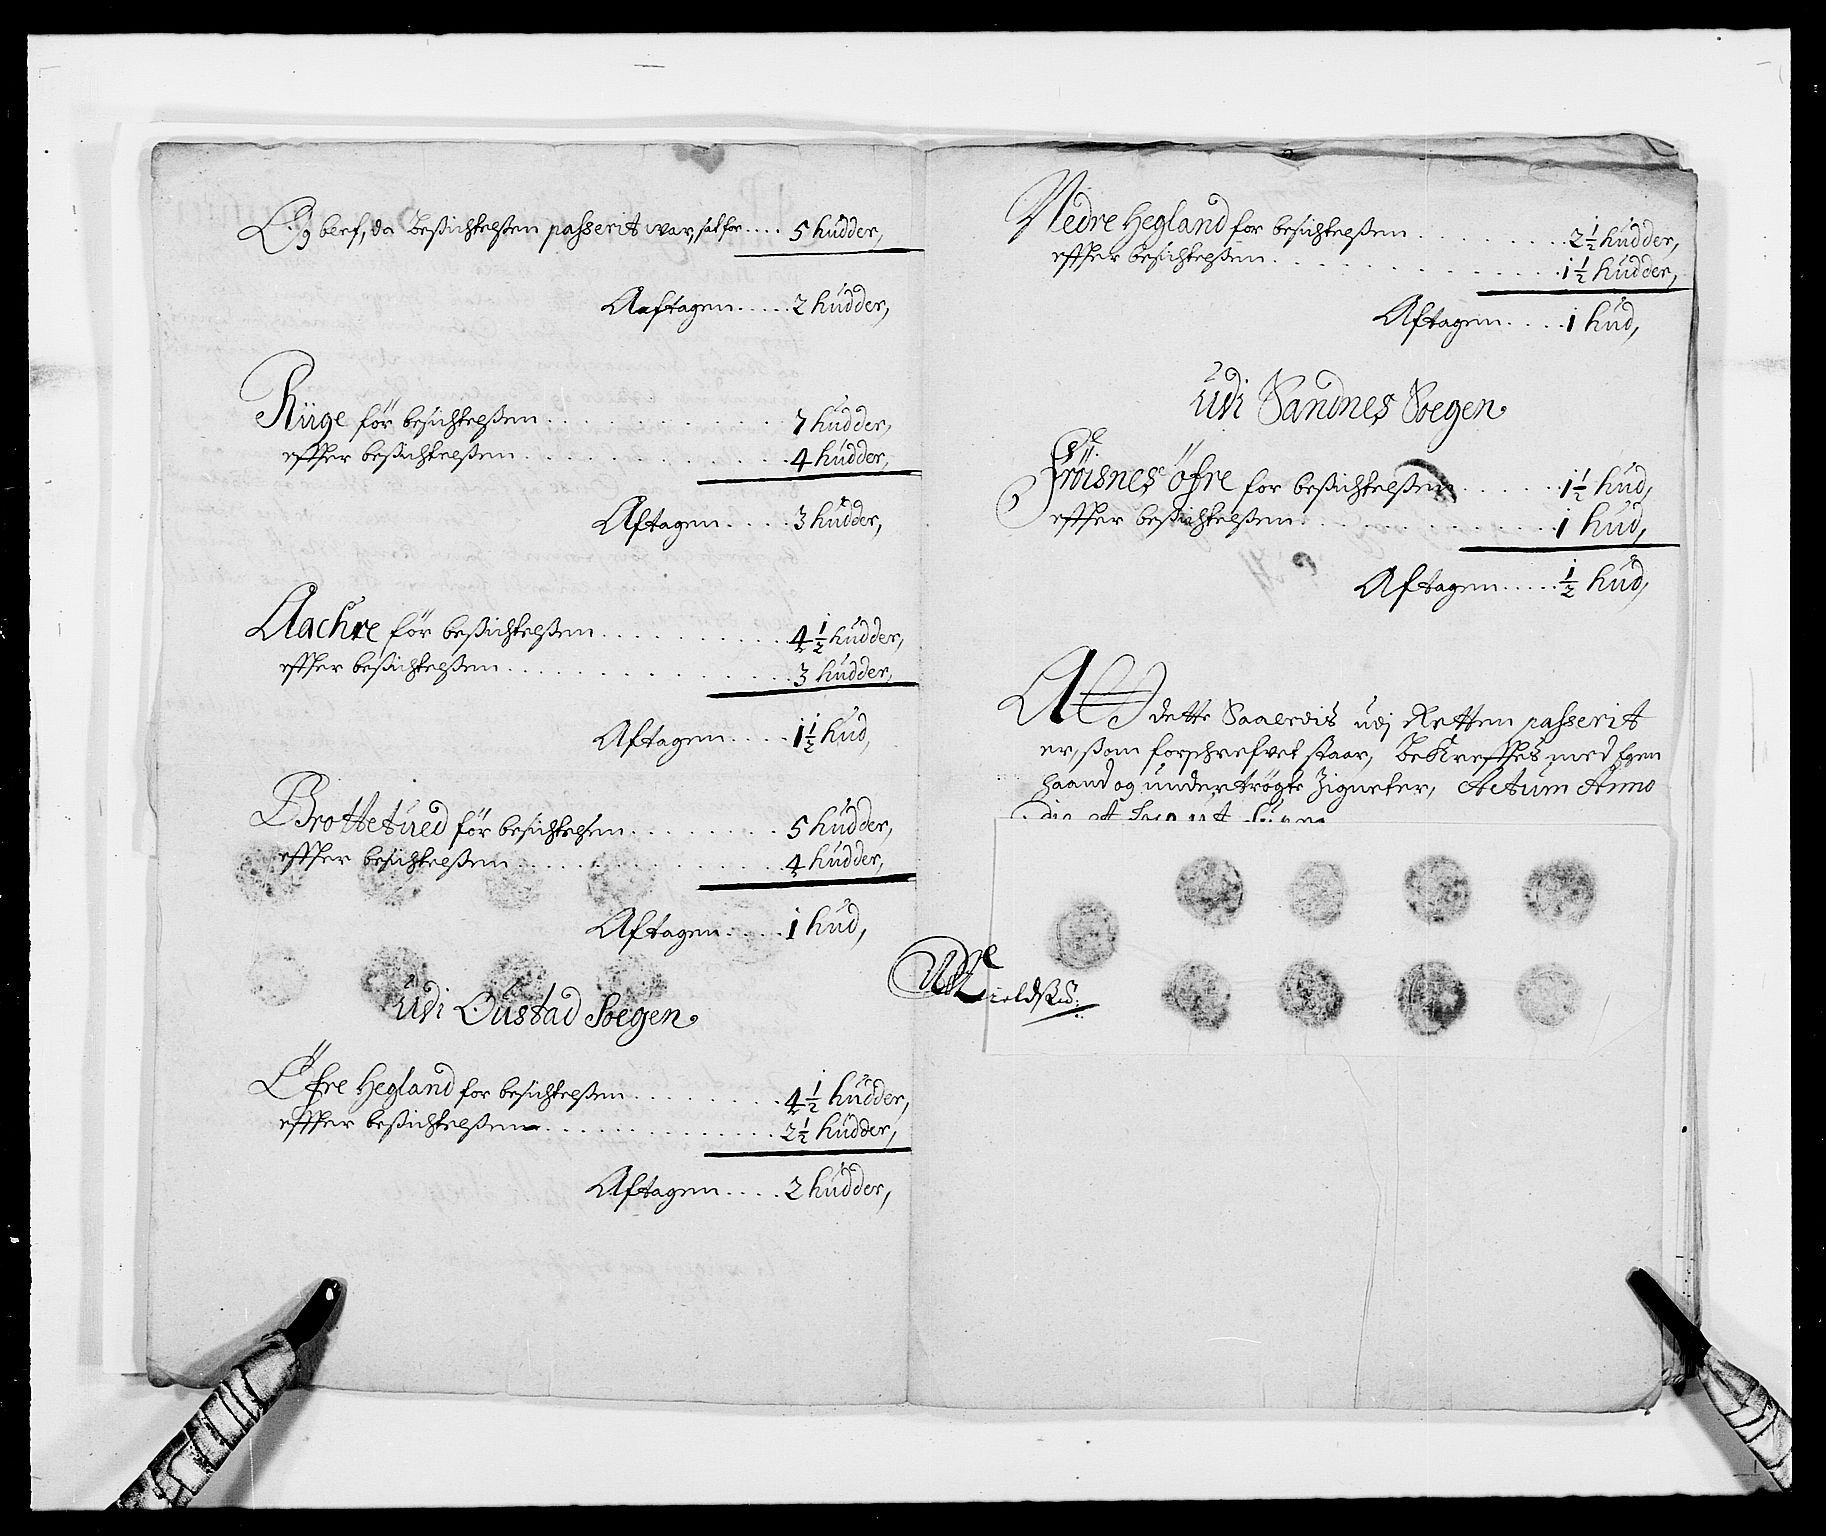 Og blef, da Besichtelssen passerit war, sat for.... 5 hudder,
Aaftagen..... 2 hudder,
Riige för besichtelssen............ 7 hudder,
effter bessichtelssen............ 4 hudder,
Aftagen.... 3 hudder,
Aachre för bessichtelssen.......... 4½ hudder,
effter bessichtelssen............. 3 hudder,
Aftagen.... 1½ hud,
Brottetued för besichtelsen........ 5 hudder,
effter besichtelssen............. 4 hudder,
Aftagen..... 1 hud,
Udi Oustad Soegen
Öfre Hegland for besichtelssen........ 4½ hudder,
effter bessichtelssen............. 2½ hudder,
Aftagen.... 2 hudder,
Nedre Hegland for besichtelssen......... 2½ hudder,
effter besichtelssen............... 1½ hudder,
Aftagen.... 1 hud,
Udi Sandnes Soegen
Fröisnes öfre for bessichtelssen...... 1½ hud,
effter bessichtelssen............ 1 hud,
Aftagen..... ½ hud,
Att dette Saaledis udj Retten passerit
er, ssom forschrefvet staar, Bekrefftes med Egen
haand og undertrögte Zigneter, Actum Anno
die et loco ut supra